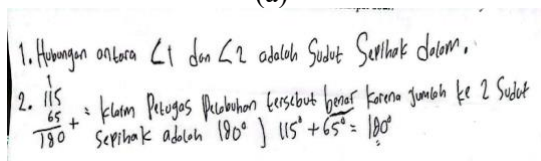 (a)
1. Hubungan antara ∠1 dan ∠2 adalah Sudut Sepihak dalam.
2. 115
65
180 + = klaim Petugas Pelabuhan tersebut benar karena jumlah ke 2 Sudut
Sepihak adalah 180° } 115° + 65° = 180°